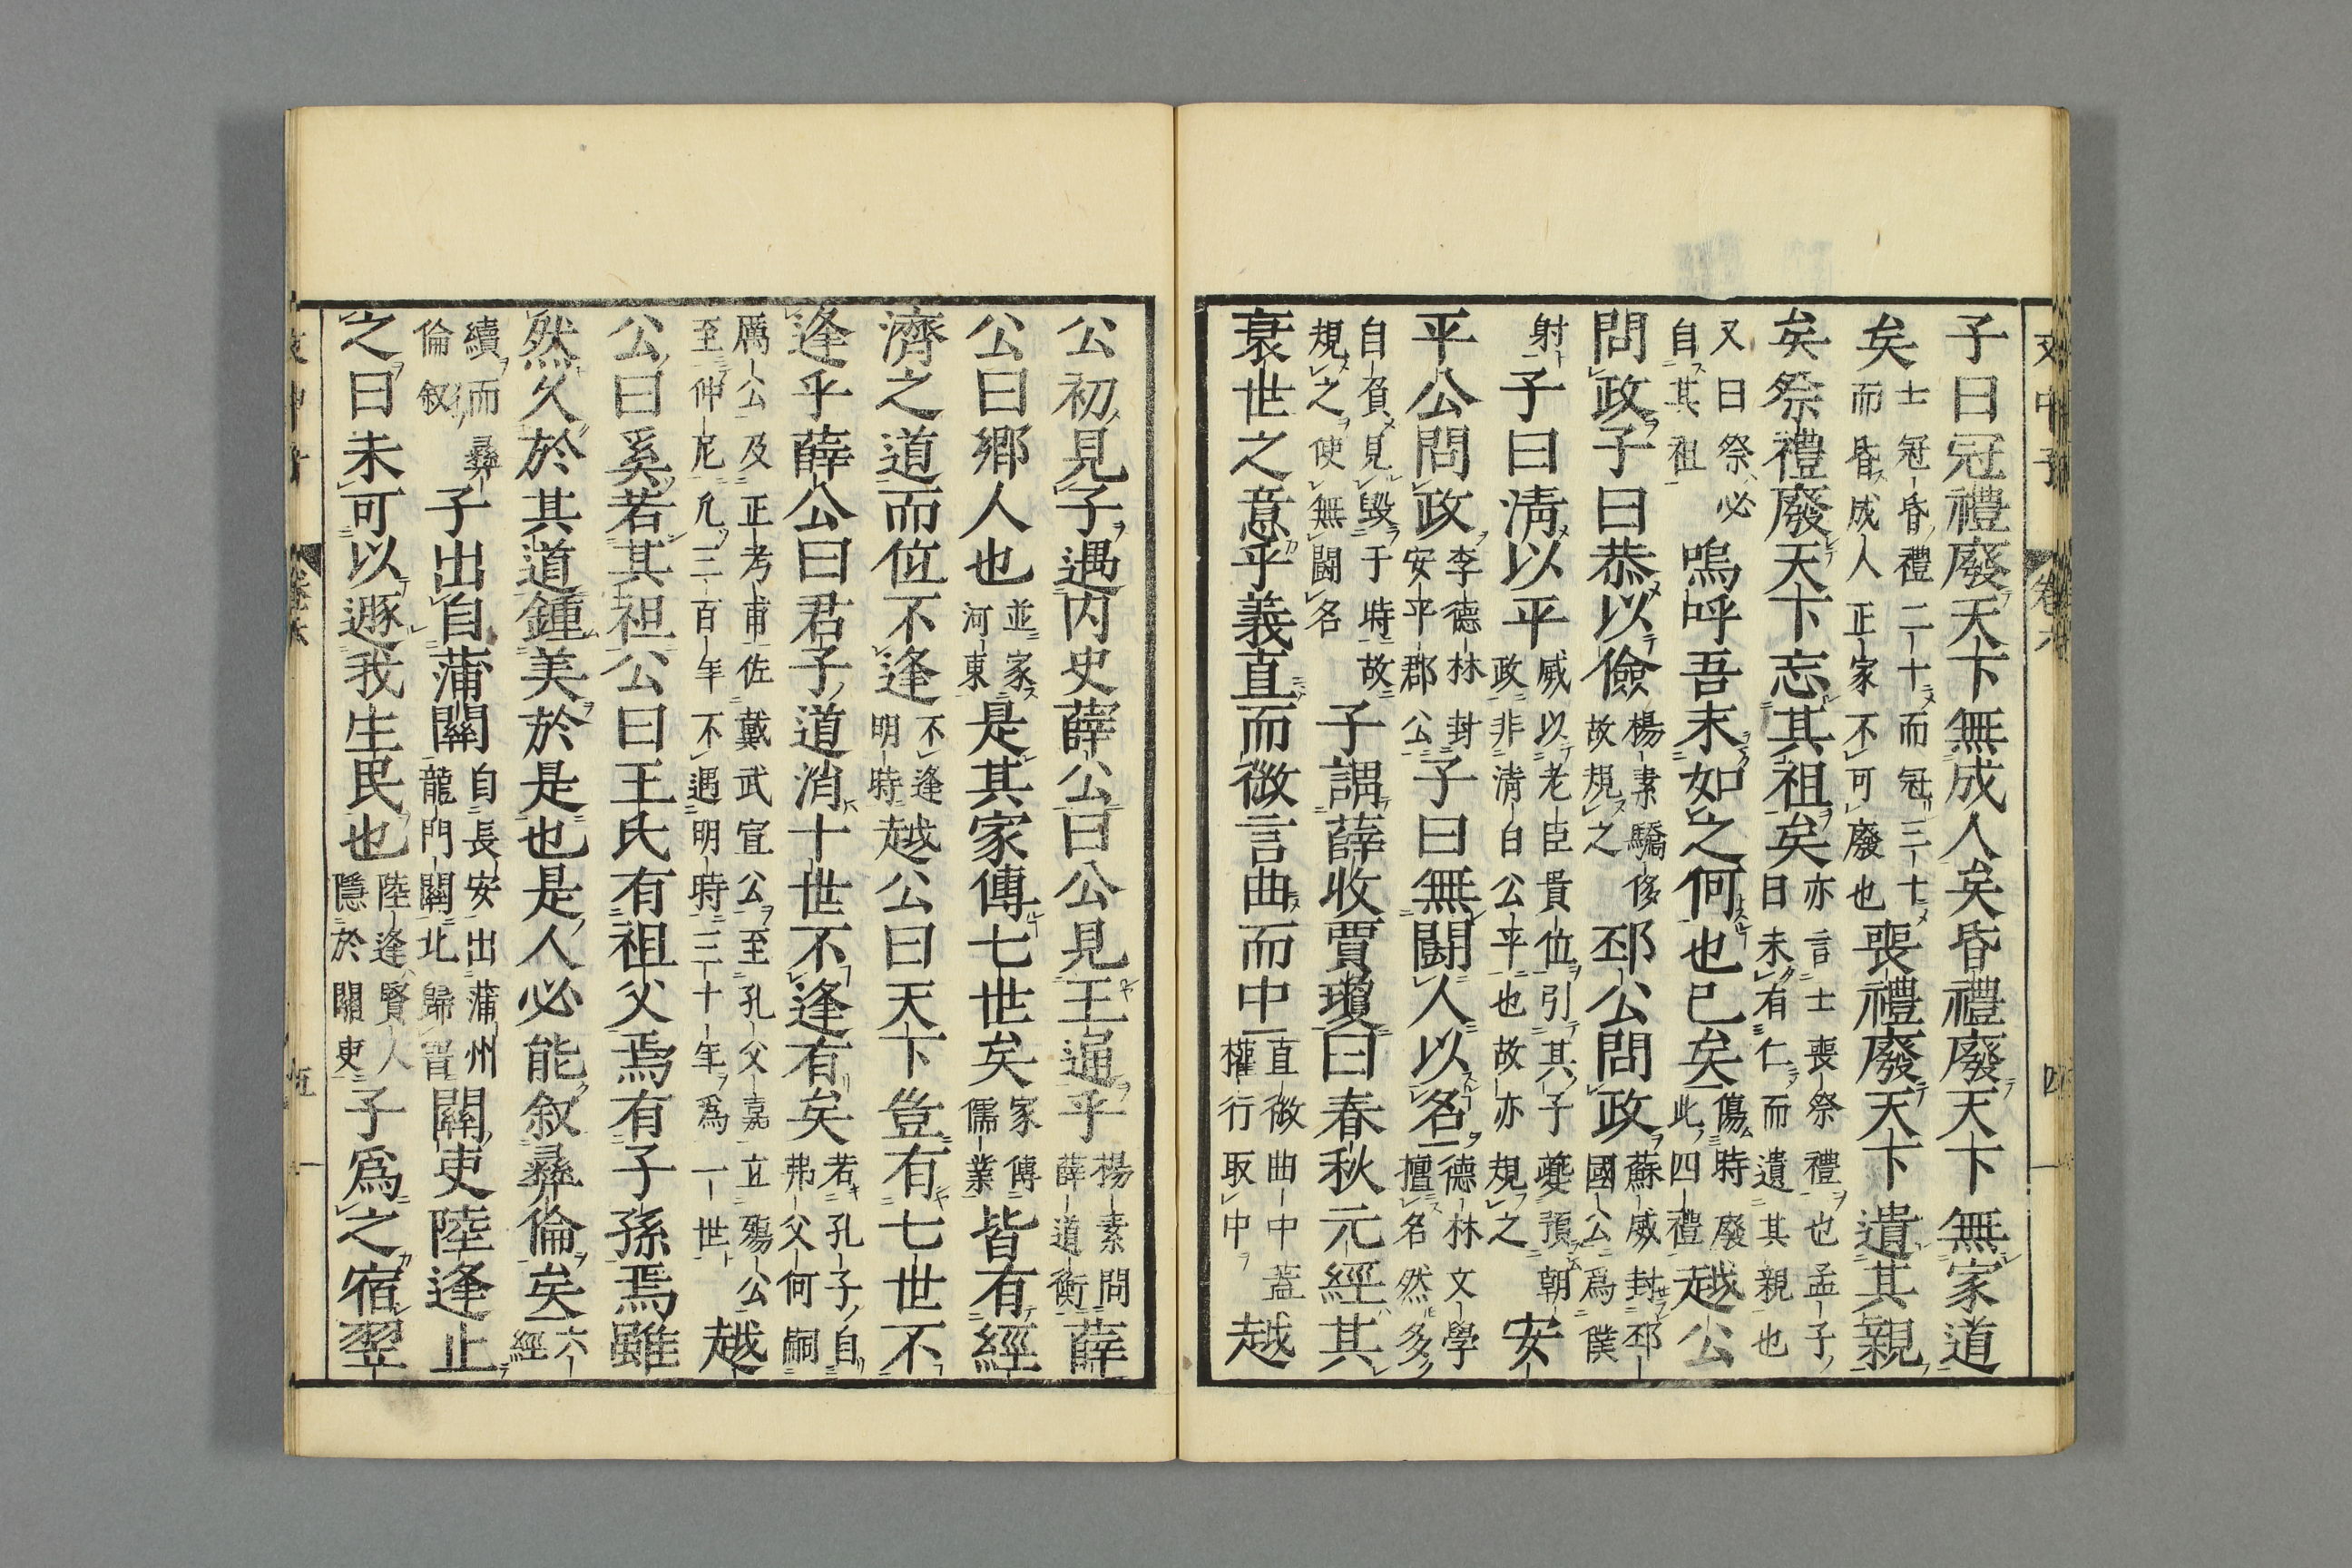 文中子　卷六　四
子曰冠禮廢天下無成人矣昏禮廢天下無家道
矣士冠昏禮二十而冠三十而昏成人正家不可廢也喪禮廢天下遺其親
矣祭禮廢天下忘其祖矣亦言士喪祭禮也孟子曰未有仁而遺其親也
又曰祭必自其祖嗚呼吾末如之何也已矣傷時廢此四禮越公
問政子曰恭以儉楊素驕侈故規之邳公問政蘇威封邳國公爲僕
射子曰淸以平威以老臣貴位引其子夔預朝政非淸白公平也故亦規之安
平公問政李德林封安平郡公子曰無鬪人以名德林文學擅名然多
自負見毀于時故規之使無鬪名子謂薛收賈瓊曰春秋元經其
衰世之意乎義直而微言曲而中直微曲中蓋權行取中越
公初見子遇内史薛公曰公見王通乎楊素問薛道衡薛
公曰鄉人也並家河東是其家傳七世矣家傳儒業皆有經
濟之道而位不逢不逢明時越公曰天下豈有七世不
逢乎薛公曰君子道消十世不逢有矣若孔子自弗父何嗣
厲公及正考甫佐戴武宣公至孔父嘉立殤公至仲尼凡三百年不遇明時三十年爲一世越
公曰奚若其祖公曰王氏有祖父焉有子孫焉雖
然久於其道鍾美於是也是人必能叙彝倫矣六經
續而彝倫叙子出自蒲關自長安出蒲州龍門關北歸晋關吏陸逢止
之曰未可以遯我生民也陸逢賢人隱於關吏子爲之宿翌
文中子　卷六　五